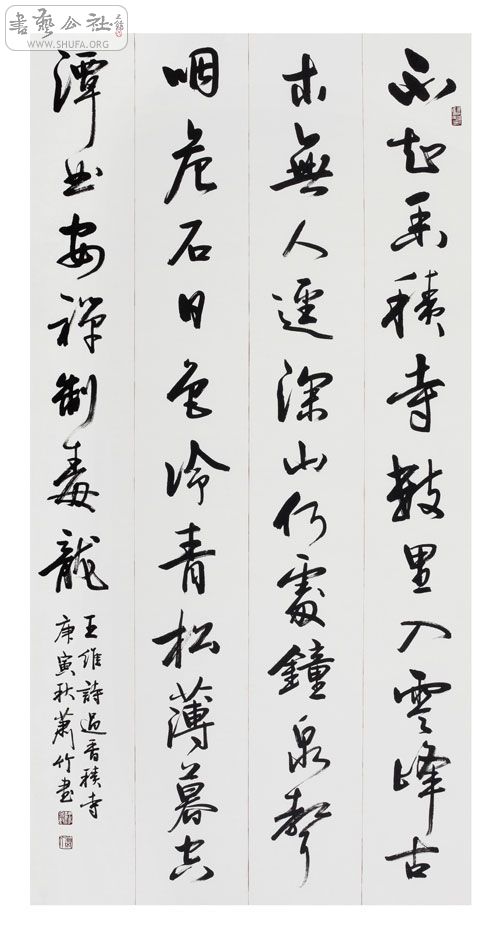 書藝公社
WWW.SHUFA.ORG
不知香積寺數里入雲峰古
木無人逕深山何處鐘泉聲
咽危石日色冷青松薄暮空
潭曲安禪制毒龍
王維詩過香積寺
庚寅秋蕭竹書